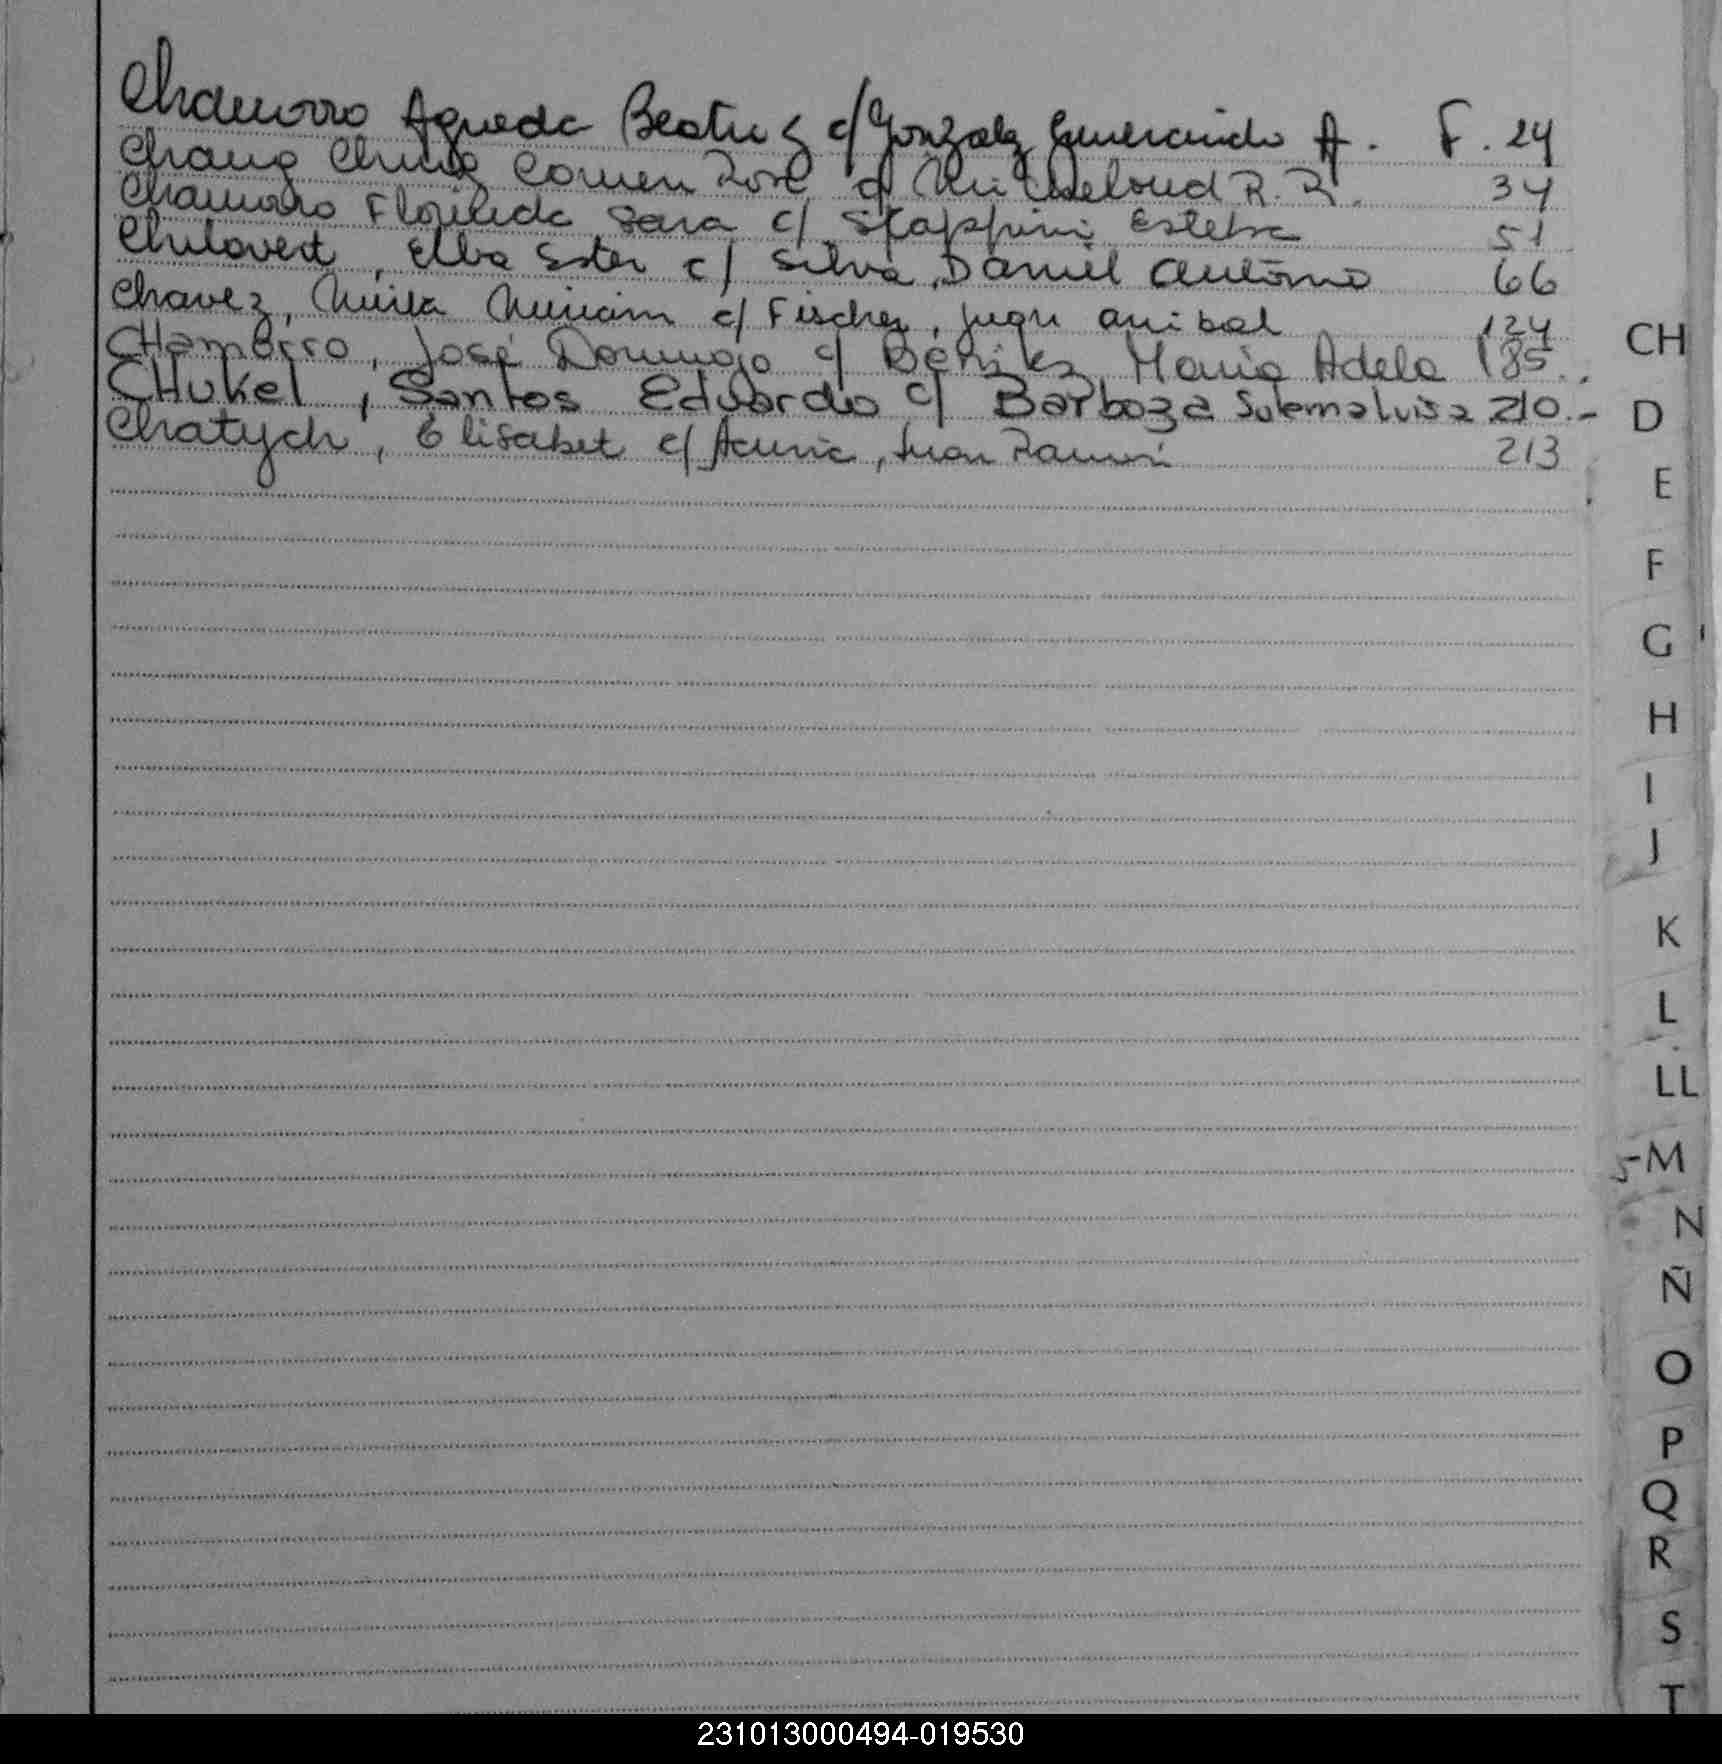 Chamorro Agueda Beatriz c/ Gonzalez Gumercindo A. F. 24
Chang Ching Carmen Rosa c/ Micheloud R. R. 34
Chamorro Florinda Sara c/ Stappini Esteban 51
Elba Ester c/ Silva, Daniel Antonio 66
Chavez, Mirta Miriam c/ Fischer, Juan Anibal 124
CHamorro, José Domingo c/ Benitez María Adela 185.
CHUKel, Santos Eduardo c/ Barboza Sulema Luisa 210.-
Chatych, Elisabet c/ Acuña, Juan Ramón 213
CH
D
E
F
G
H
I
J
K
L
LL
M
N
Ñ
O
P
Q
R
S
T
231013000494-019530